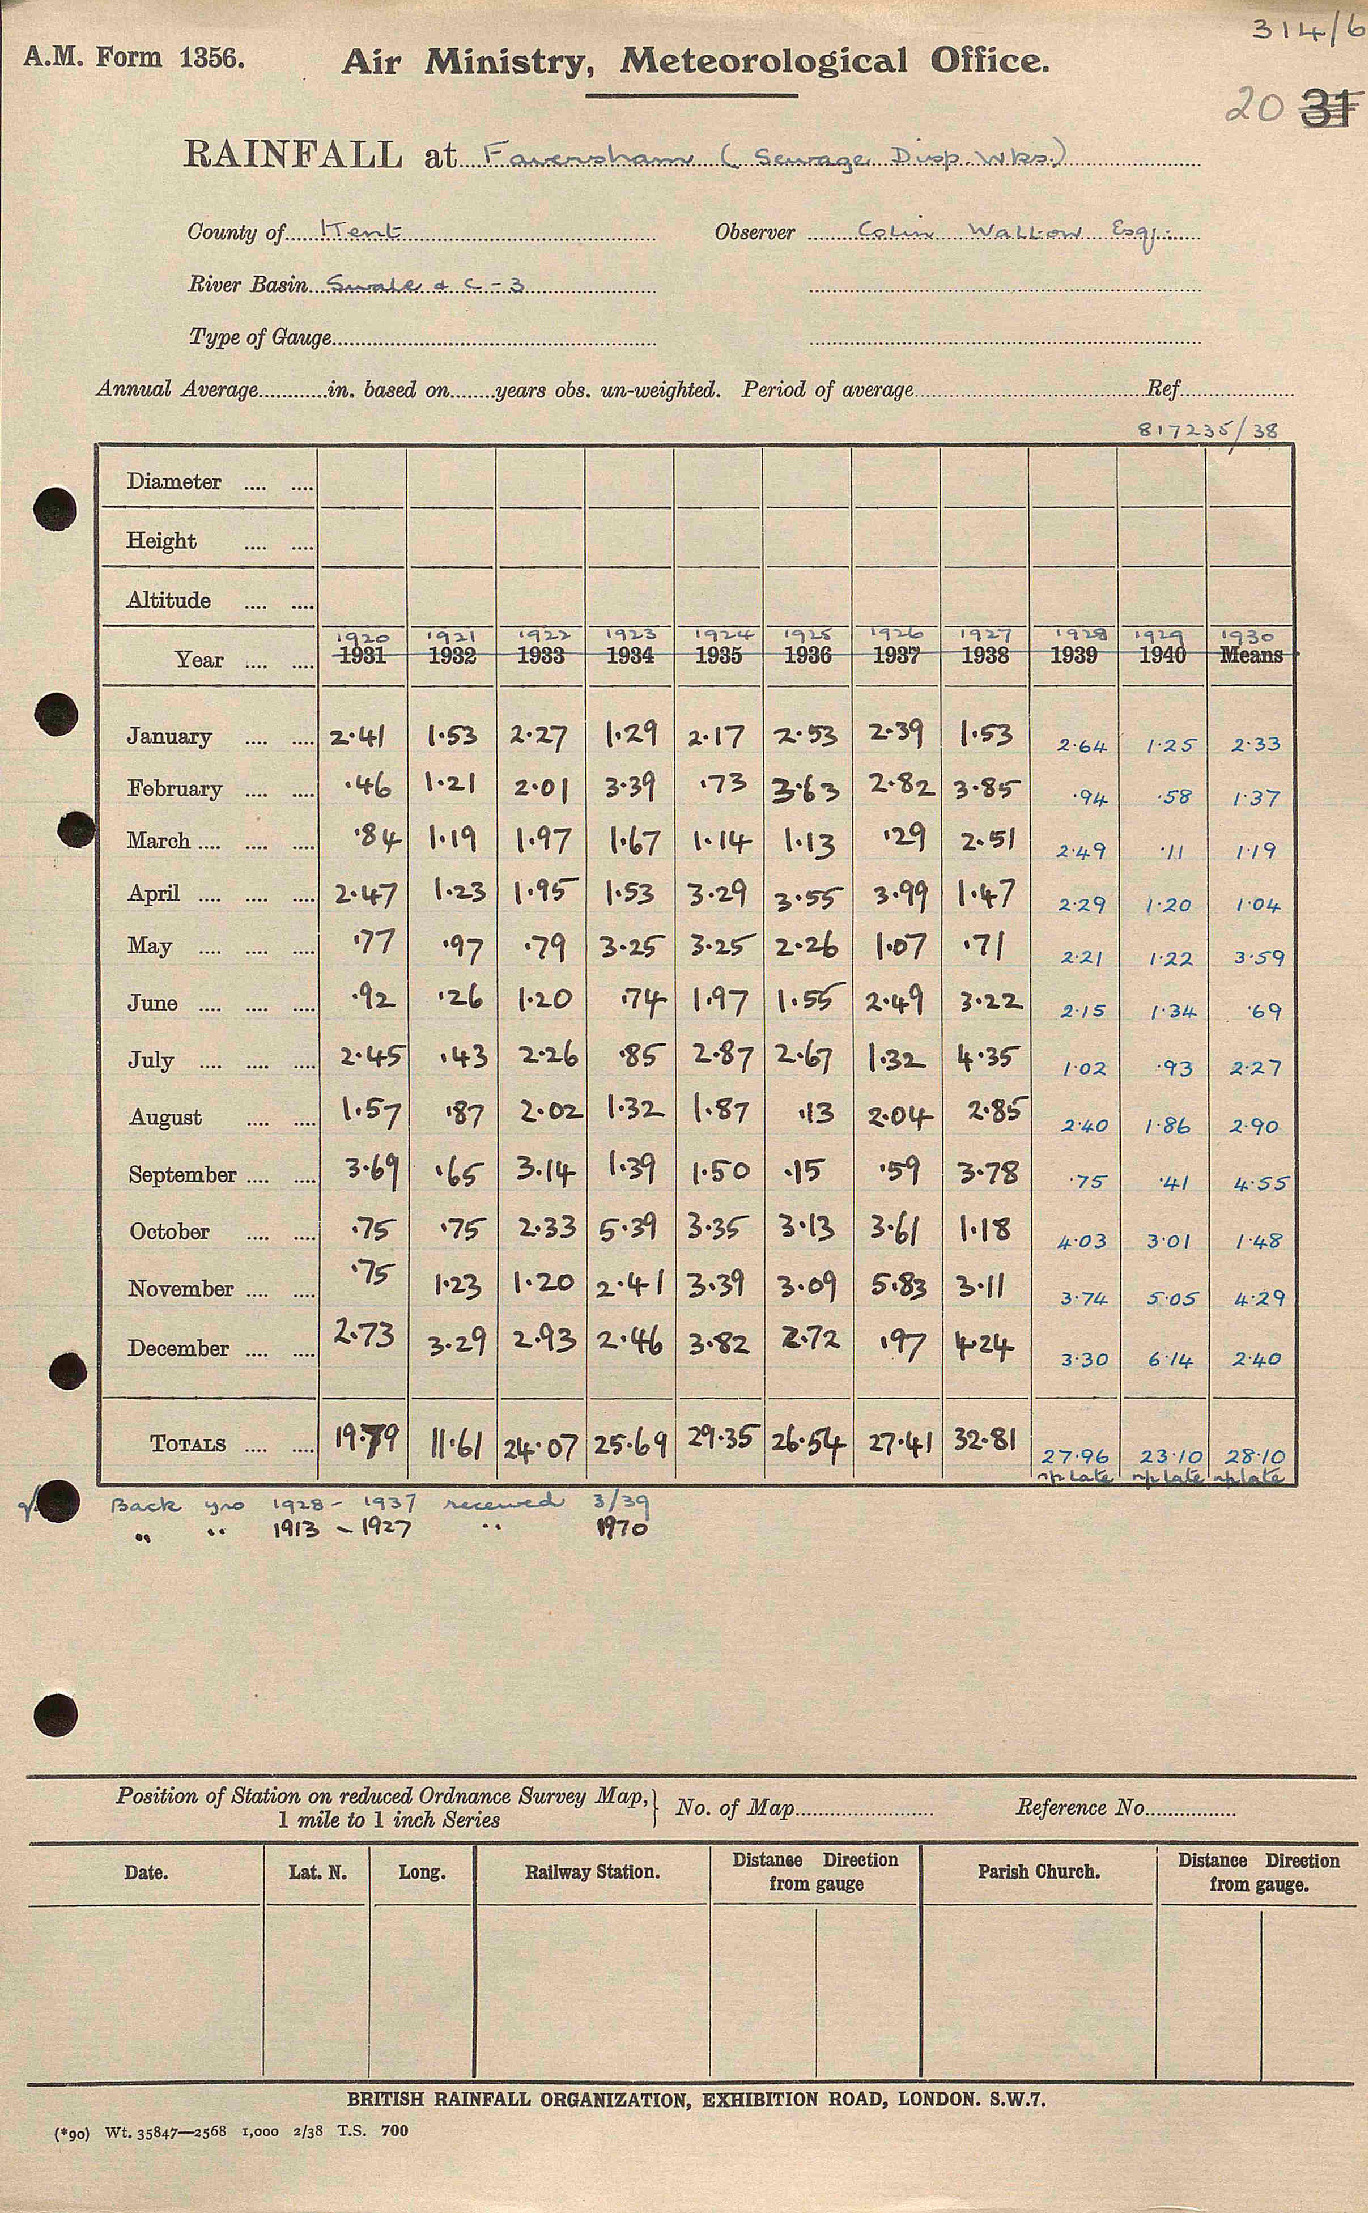 314/6
A.M. Form 1356. Air Ministry, Meteorological Office.
20 31
RAINFALL at Faversham (Sewage Disp. Wks.)
County of Kent Observer Colin Wallow Esq.
River Basin Swale & C - 3
Type of Gauge
Annual Average in. based on years obs. un-weighted. Period of average Ref.
817235/38
Diameter
Height
Altitude
1920 1921 1922 1923 1924 1925 1926 1927 1928 1929 1930
Year 1931 1932 1933 1934 1935 1936 1937 1938 1939 1940 Means
January 2.41 1.53 2.27 1.29 2.17 2.53 2.39 1.53 2.64 1.25 2.33
February .46 1.21 2.01 3.39 .73 3.63 2.82 3.85 .94 .58 1.37
March .84 1.19 1.97 1.67 1.14 1.13 .29 2.51 2.49 .11 1.19
April 2.47 1.23 1.95 1.53 3.29 3.55 3.99 1.47 2.29 1.20 1.04
May .77 .97 .79 3.25 3.25 2.26 1.07 .71 2.21 1.22 3.59
June .92 .26 1.20 .74 1.97 1.55 2.49 3.22 2.15 1.34 .69
July 2.45 .43 2.26 .85 2.87 2.67 1.32 4.35 1.02 .93 2.27
August 1.57 .87 2.02 1.32 1.87 .13 2.04 2.85 2.40 1.86 2.90
September 3.69 .65 3.14 1.39 1.50 .15 .59 3.78 .75 .41 4.55
October .75 .75 2.33 5.39 3.35 3.13 3.61 1.18 4.03 3.01 1.48
November .75 1.23 1.20 2.41 3.39 3.09 5.83 3.11 3.74 5.05 4.29
December 2.73 3.29 2.93 2.46 3.82 2.72 .97 4.24 3.30 6.14 2.40
TOTALS 19.79 11.61 24.07 25.69 29.35 26.54 27.41 32.81 27.96 23.10 28.10
late late late
Back yrs 1928 - 1937 received 3/39
" " 1913 - 1927 " 1970
Position of Station on reduced Ordnance Survey Map, } No. of Map Reference No.
1 mile to 1 inch Series
Date. Lat. N. Long. Railway Station. Distance Direction from gauge Parish Church. Distance Direction from gauge.
BRITISH RAINFALL ORGANIZATION, EXHIBITION ROAD, LONDON. S.W.7.
(*90) Wt. 35847—2568 1,000 2/38 T.S. 700